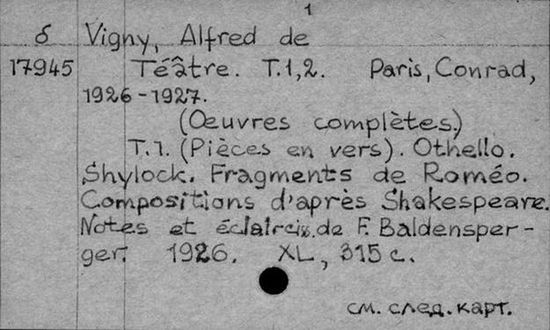 1
δ Vigny, Alfred de
17945 Téâtre. T.1,2. Paris, Conrad,
1926-1927.
(Œuvres complètes.)
T.1. (Pièces en vers). Othello.
Shylock. Fragments de Roméo.
Compositions d'après Shakespeare.
Notes et éclaircis. de F. Baldensper-
ger. 1926. XL, 315 c.
см. след. карт.